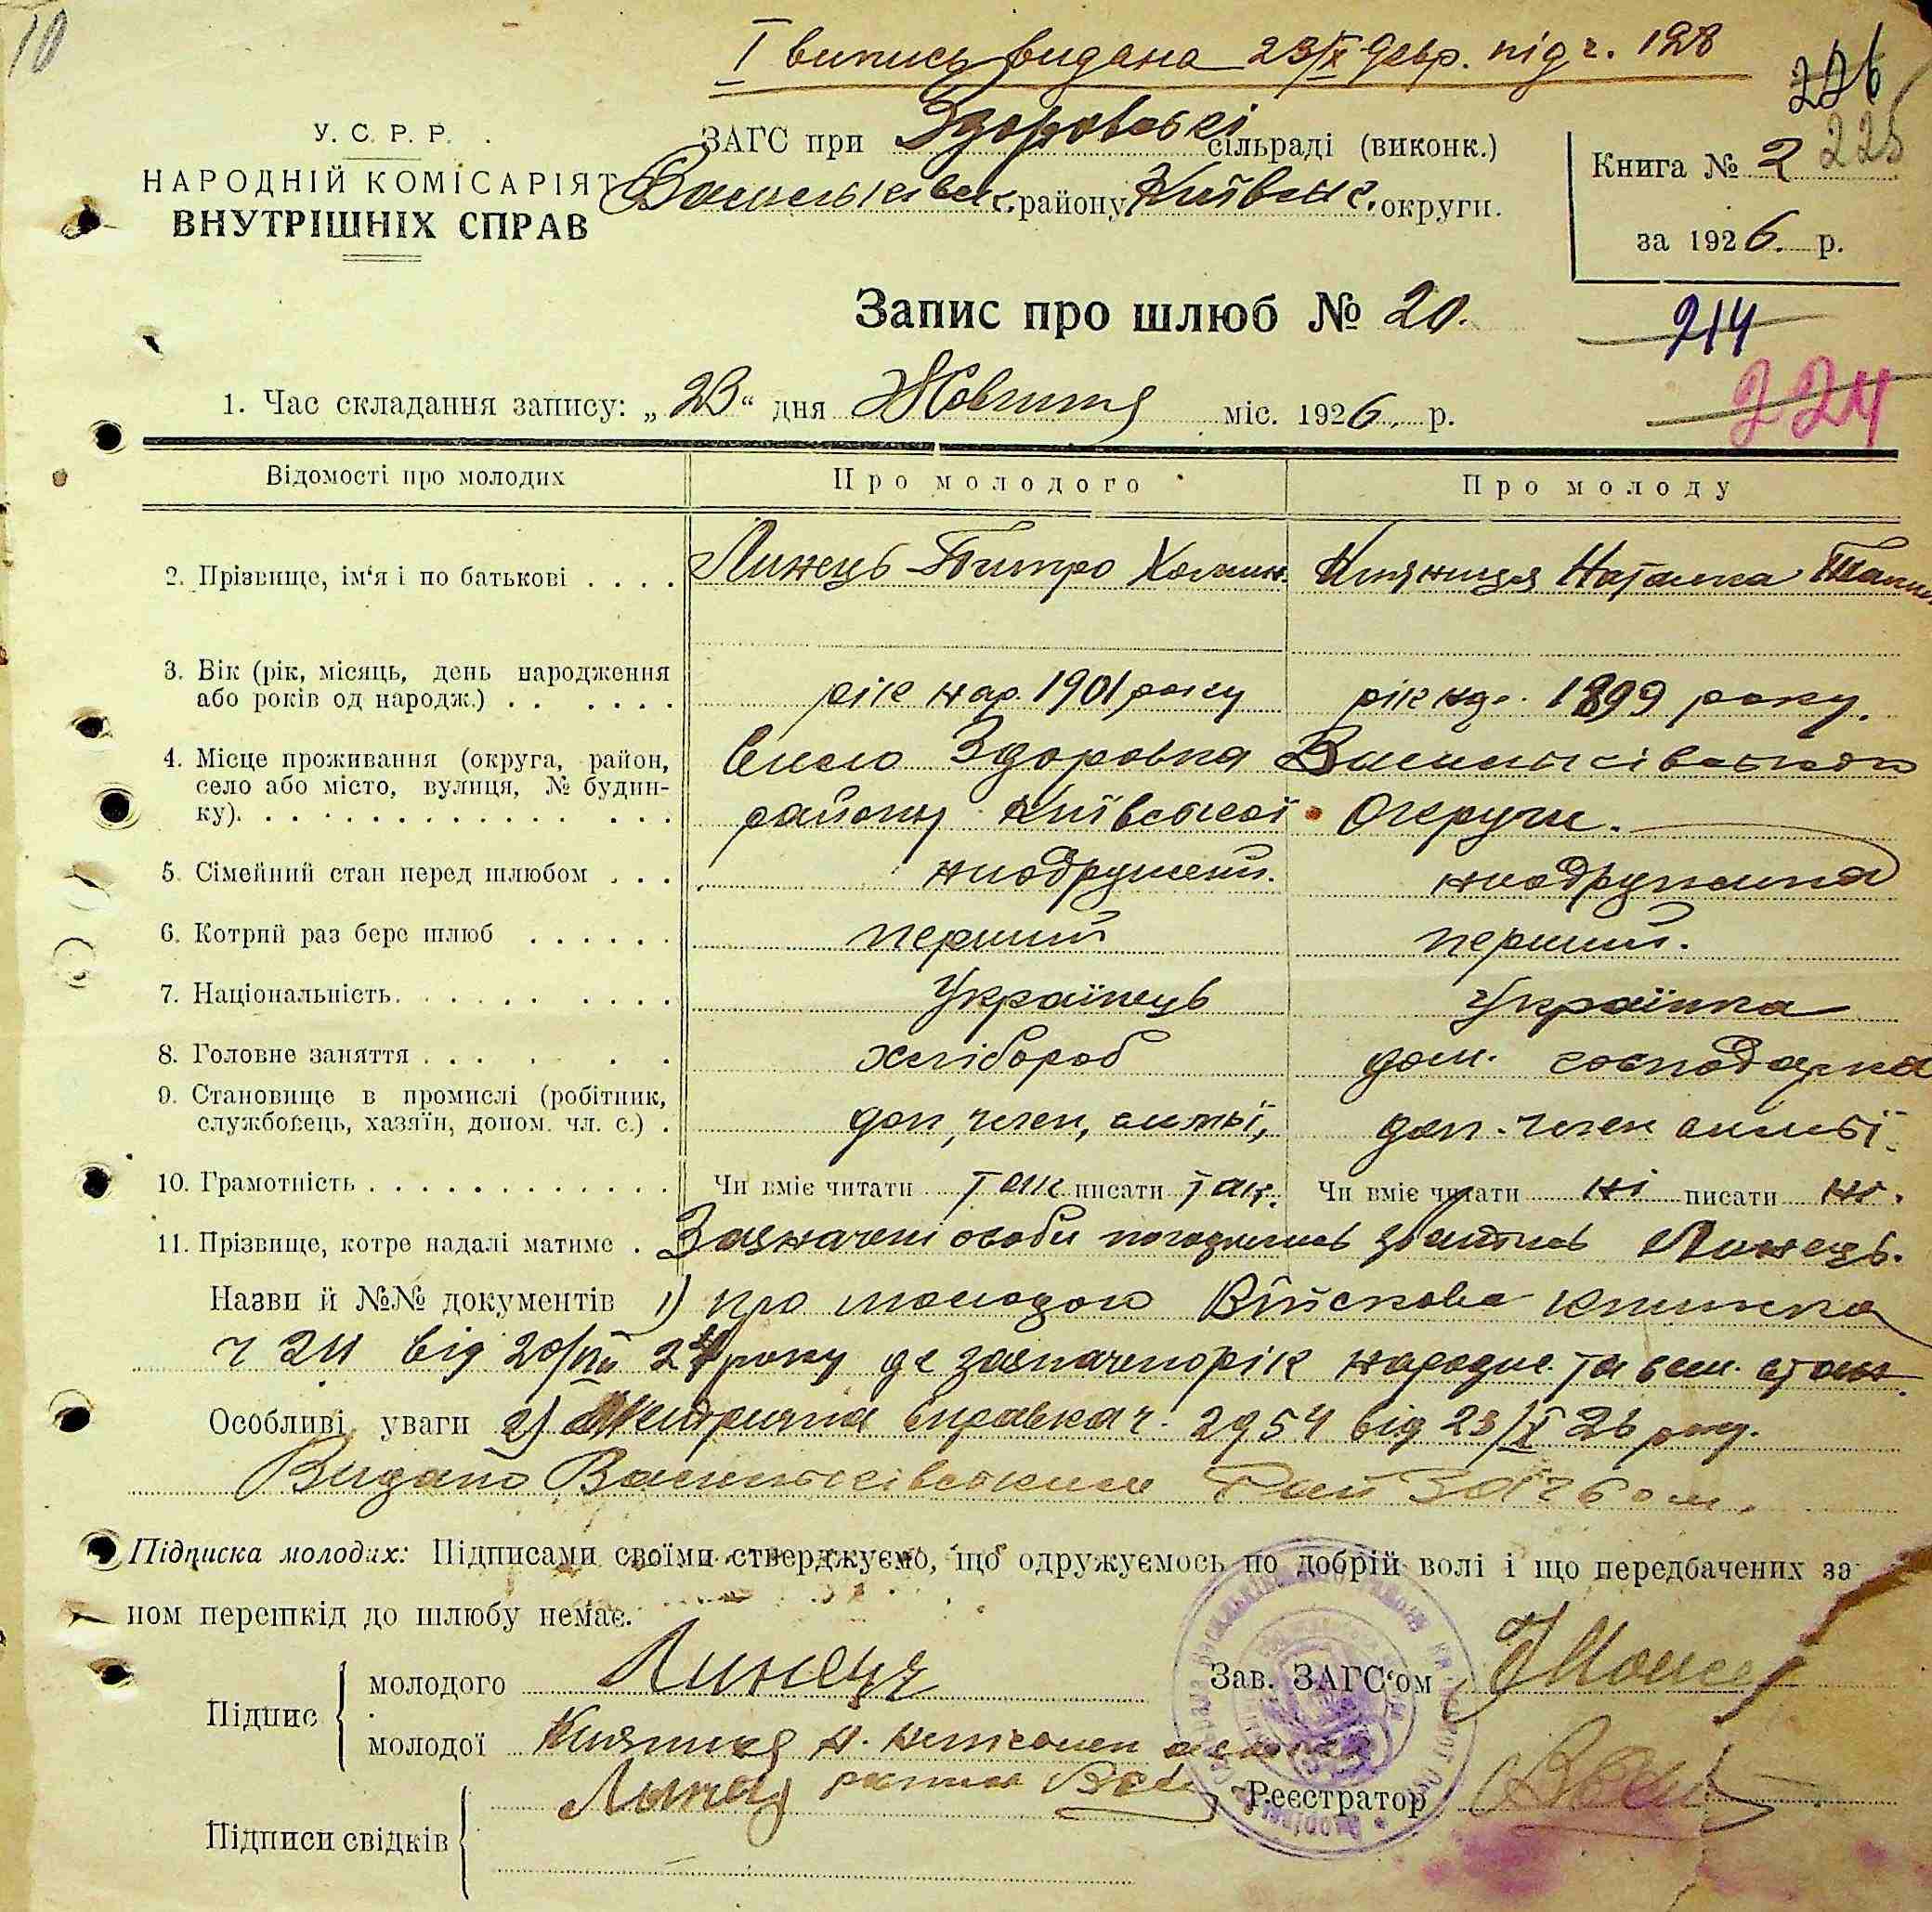 10
І випись видана 23/X під ч. 128
226
225
У. С. Р. Р.
НАРОДНІЙ КОМІСАРІЯТ
ВНУТРІШНІХ СПРАВ
ЗАГС при Здоровській сільраді (виконк.)
Васильківськ. району Київськ. округи.
Книга № 2
за 1926. р.
Запис про шлюб № 20.
214
224
1. Час складання запису: „23“ дня Жовтня міс. 1926. р.
Відомості про молодих
Про молодого
Про молоду
2. Прізвище, ім‘я і по батькові . . . . Линець Хомин. Наталка
3. Вік (рік, місяць, день народження
або років од народж.) . . . . . . рік нар. 1901 року рік нар. 1899 року.
4. Місце проживання (округа, район, село Здоровка Васильківського
село або місто, вулиця, № будин-
ку). . . . . . . . . . . . . . . району Київської Округи.
5. Сімейний стан перед шлюбом . . .
6. Котрий раз бере шлюб . . . . . . перший перший.
7. Національність. . . . . . . . . Українець Українка
8. Головне заняття . . . . . . хлібороб дом. господарка
9. Становище в промислі (робітник,
службовець, хазяїн, допом. чл. с.) . доп, член, симьї, доп. член симьї.
10. Грамотність . . . . . . . . . . . . . Чи вміє читати так писати так. Чи вміє читати ні писати ні.
11. Прізвище, котре надалі матиме . Зазначені особи погодились зватись Линець.
Назви й №№ документів 1) про молодого Війскова книжка
ч 211 від року де зазначено рік народж. та сем. стан.
Особливі уваги 2) Метрична справка ч. 2954 від 23/X 26 року.
Видано Васильківським Рай ЗАГСом.
Підписка молодих: Підписами своїми стверджуємо, що одружуємось по добрій волі і що передбачених за
ном перешкід до шлюбу немає.
Підпис
молодого Линець
молодої Княниця Н.
Зав. ЗАГС‘ом
Реєстратор
Підписи свідків